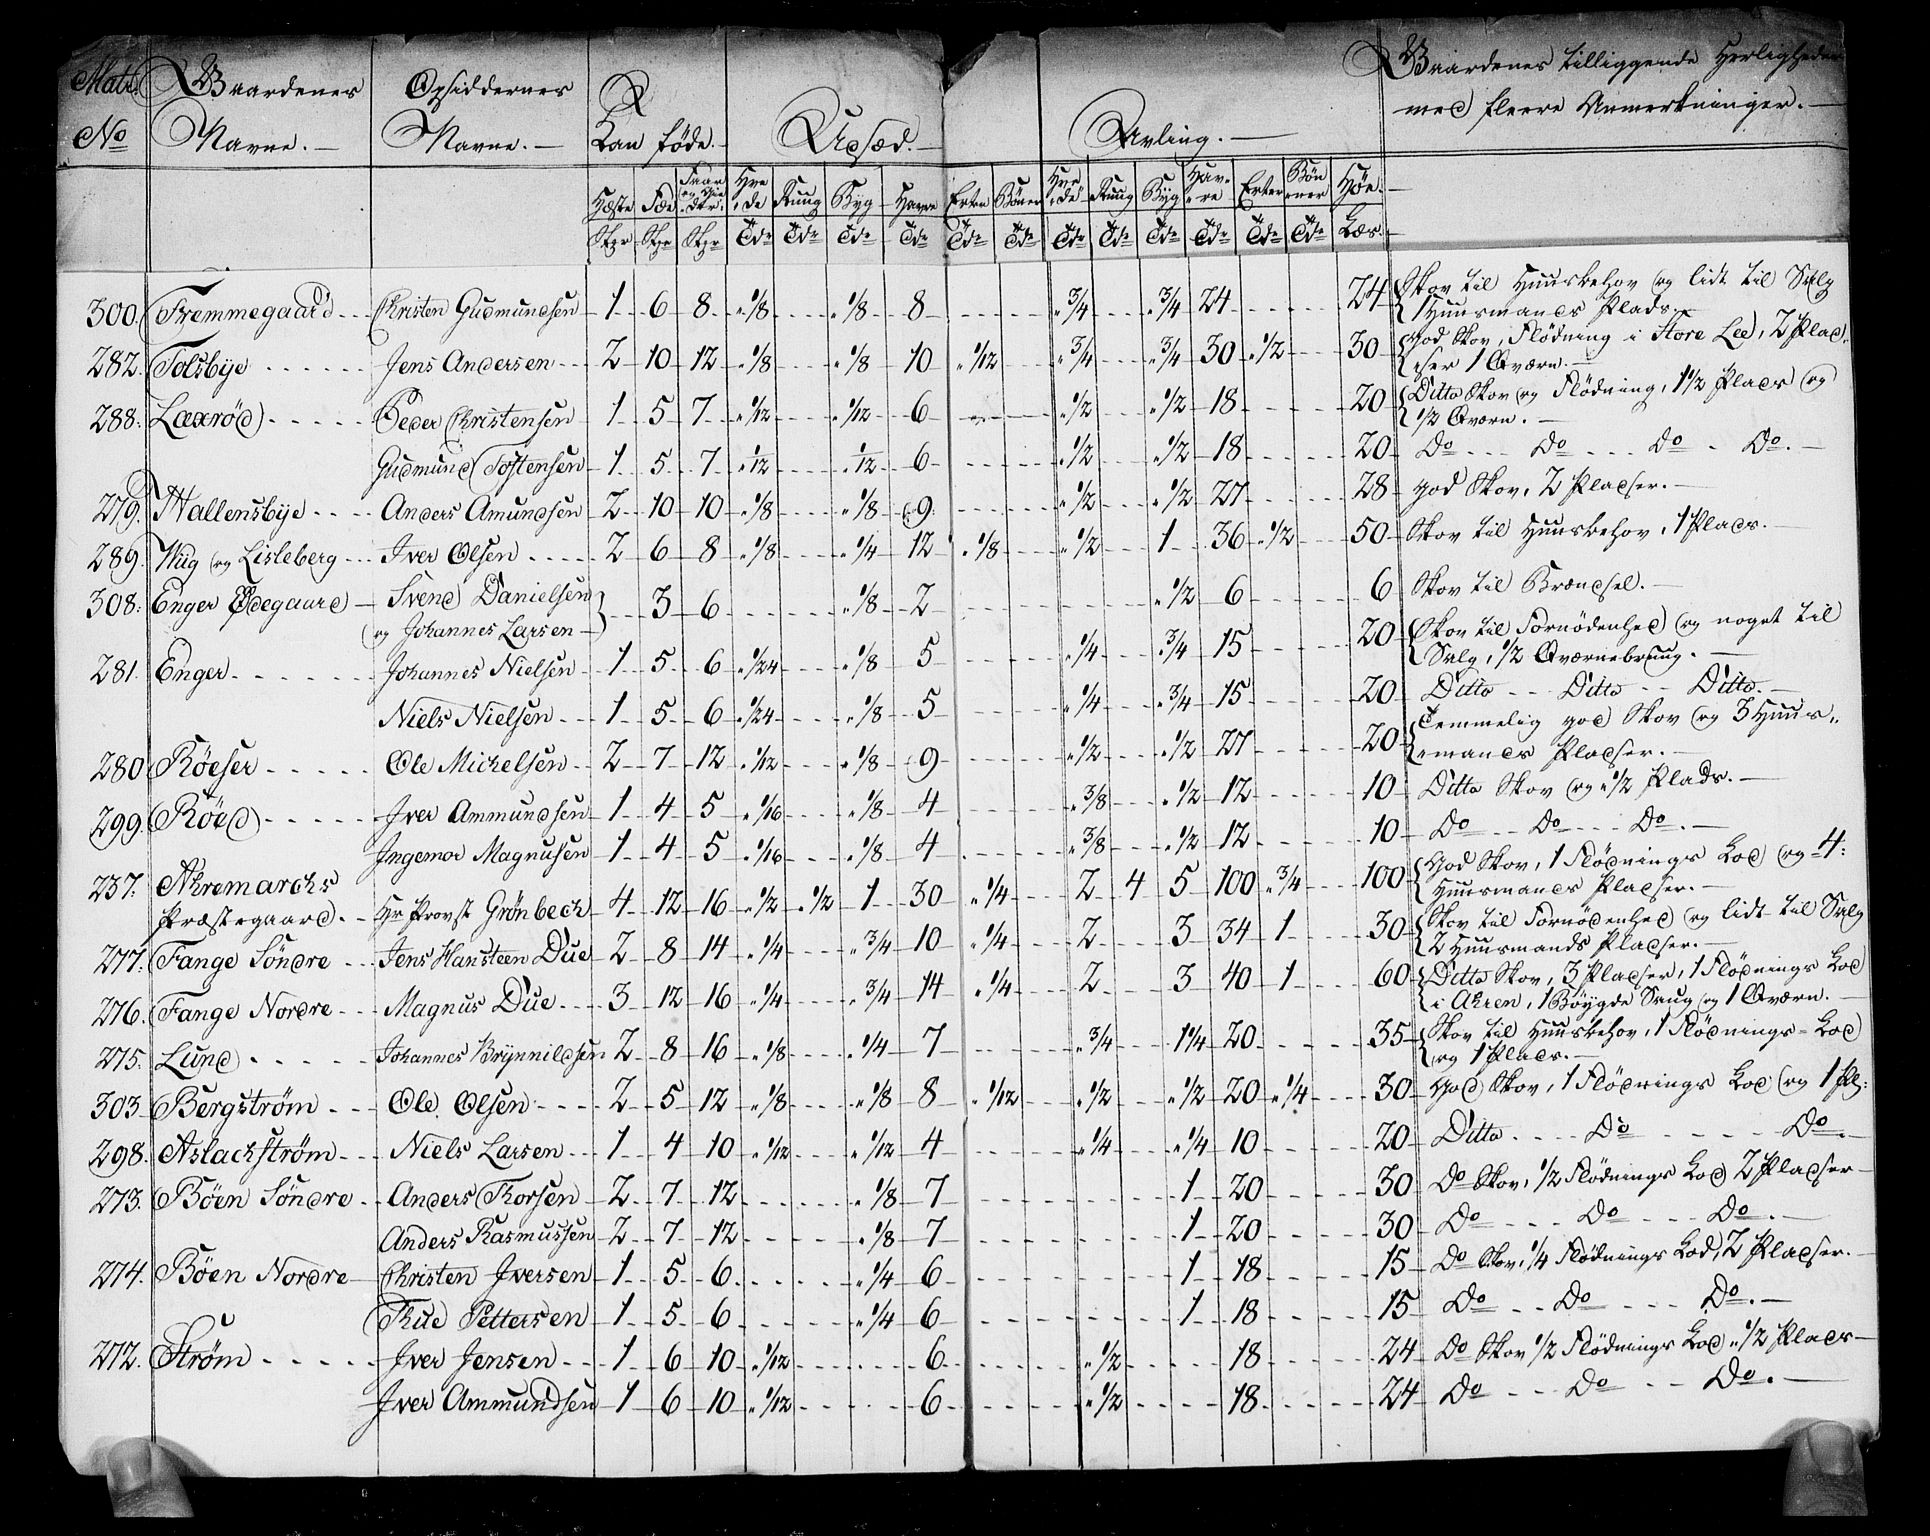 Matr. Gaardenes Opsiddernes Kan føde. Udsæd. Avling. Gaardenes tilliggende Herligheder
No Navne. Navne. med fleere Anmerkninger.
Hæste Fæe Faar og Gie dtr: Hve de Ruug Byg Havre Erter Bøner Hve de Ruug Byg Hav re Erter Bøn ner Høe.
Stpr Stpr Stpr Tdr Tdr Tdr Tdr Tdr Tdr Tdr Tdr Tdr Tdr Tdr Tdr Læs.
300. Tremmegaard Christen Gudmundsen 1 6 8 1/8 1/8 8 3/4 3/4 24 24 Skov til Huusbehov og lidt til Salg
1 Huusmands Plads.
282. Tolsbye Jens Andersen 2 10 12 1/8 1/8 10 1/12 3/4 3/4 30 1/2 30 God Skov, Flödning i Store Lee, 2 Plad
ser 1 Qværn.
288. Laxröd Peder Christensen 1 5 7 1/12 1/12 6 1/2 1/2 18 20 Ditto Skov og Flödning, 1 1/2 Plads og
1/2 Qværn.
Gudmund Tostensen 1 5 7 1/12 1/12 6 1/2 1/2 18 20 Do Do Do Do.
279. Hallensbye Anders Amundsen 2 10 10 1/8 1/8 9 1/2 1/2 27 28 god Skov, 2 Pladser.
289. Wiig og Lisleberg Iver Olsen 2 6 8 1/8 1/4 12 1/8 1/2 1 36 1/2 50 Skov til Huusbehov, 1 Plads.
308. Enger Ødegaard Svend Danielsen 3 6 1/8 2 1/2 6 6 Skov til Brændsel.
og Johannes Larsen
281. Enger Johannes Nielsen 1 5 6 1/24 1/8 5 1/4 3/4 15 20 Skov til Fornödenhed og noget til
Salg, 1/2 Qværnebruug.
Niels Nielsen 1 5 6 1/24 1/8 5 1/4 3/4 15 20 Ditto Ditto Ditto.
280 Röeser Ole Michelsen 2 7 12 1/12 1/8 9 1/2 1/2 27 20 Temmelig god Skov og 3 Huus
mands Pladser.
299. Röed Iver Ammundsen 1 4 5 1/16 1/8 4 3/8 1/2 12 10 Ditto Skov og 1/2 Plads.
Ingemor Magnusen 1 4 5 1/16 1/8 4 3/8 1/2 12 10 Do Do Do.
237. Akremarchs Præstegaard. Hr Provst Grönbech 4 12 16 1/2 1/2 1 30 1/4 2 4 5 100 3/4 100 God Skov, 1 Flödnings Lod og 4:
Huusmands Pladser.
277. Fange Söndre Jens Hansteen Due 2 8 14 1/4 3/4 10 1/4 2 3 34 1 30 Skov til Fornödenhed og lidt til Salg
2 Huusmands Pladser.
276. Fange Nordre Magnus Due 3 12 16 1/4 3/4 14 1/4 2 3 40 1 60 Ditto Skov, 3 Pladser, 1 Flödnings Lod
i Akren, 1 Böygde Saug og 1 Qværn.
275. Lund Johannes Brynnildsen 2 8 16 1/8 1/4 7 3/4 1 1/4 20 35 Skov til Huusbehov, 1 Flödnings-Lod
og 1 Plads.
303. Bergström Ole Olsen 2 5 12 1/8 1/8 8 1/12 1/2 1/2 20 1/4 30 God Skov, 1 Flödnings Lod og 1 Pl:
298. Aslackström Niels Larsen 1 4 10 1/12 1/12 4 1/4 1/4 10 20 Ditto Do Do.
273. Böen Söndre Anders Thorsen 2 7 12 1/8 7 1 20 30 Do Skov, 1/2 Flödnings Lod 2 Pladser
Anders Rasmussen 2 7 12 1/8 7 1 20 30 Do Do Do.
274. Böen Nordre Christen Iversen 1 5 6 1/4 6 1 18 15 Do Skov, 1/4 Flödnings Lod, 2 Pladser.
Thue Pettersen 1 5 6 1/4 6 1 18 15 Do Do Do.
272. Ström Iver Jensen 1 6 10 1/12 6 1/2 18 24 Do Skov 1/2 Flödnings Lod 1/2 Plads
Iver Ammundsen 1 6 10 1/12 6 1/2 18 24 Do Do Do.